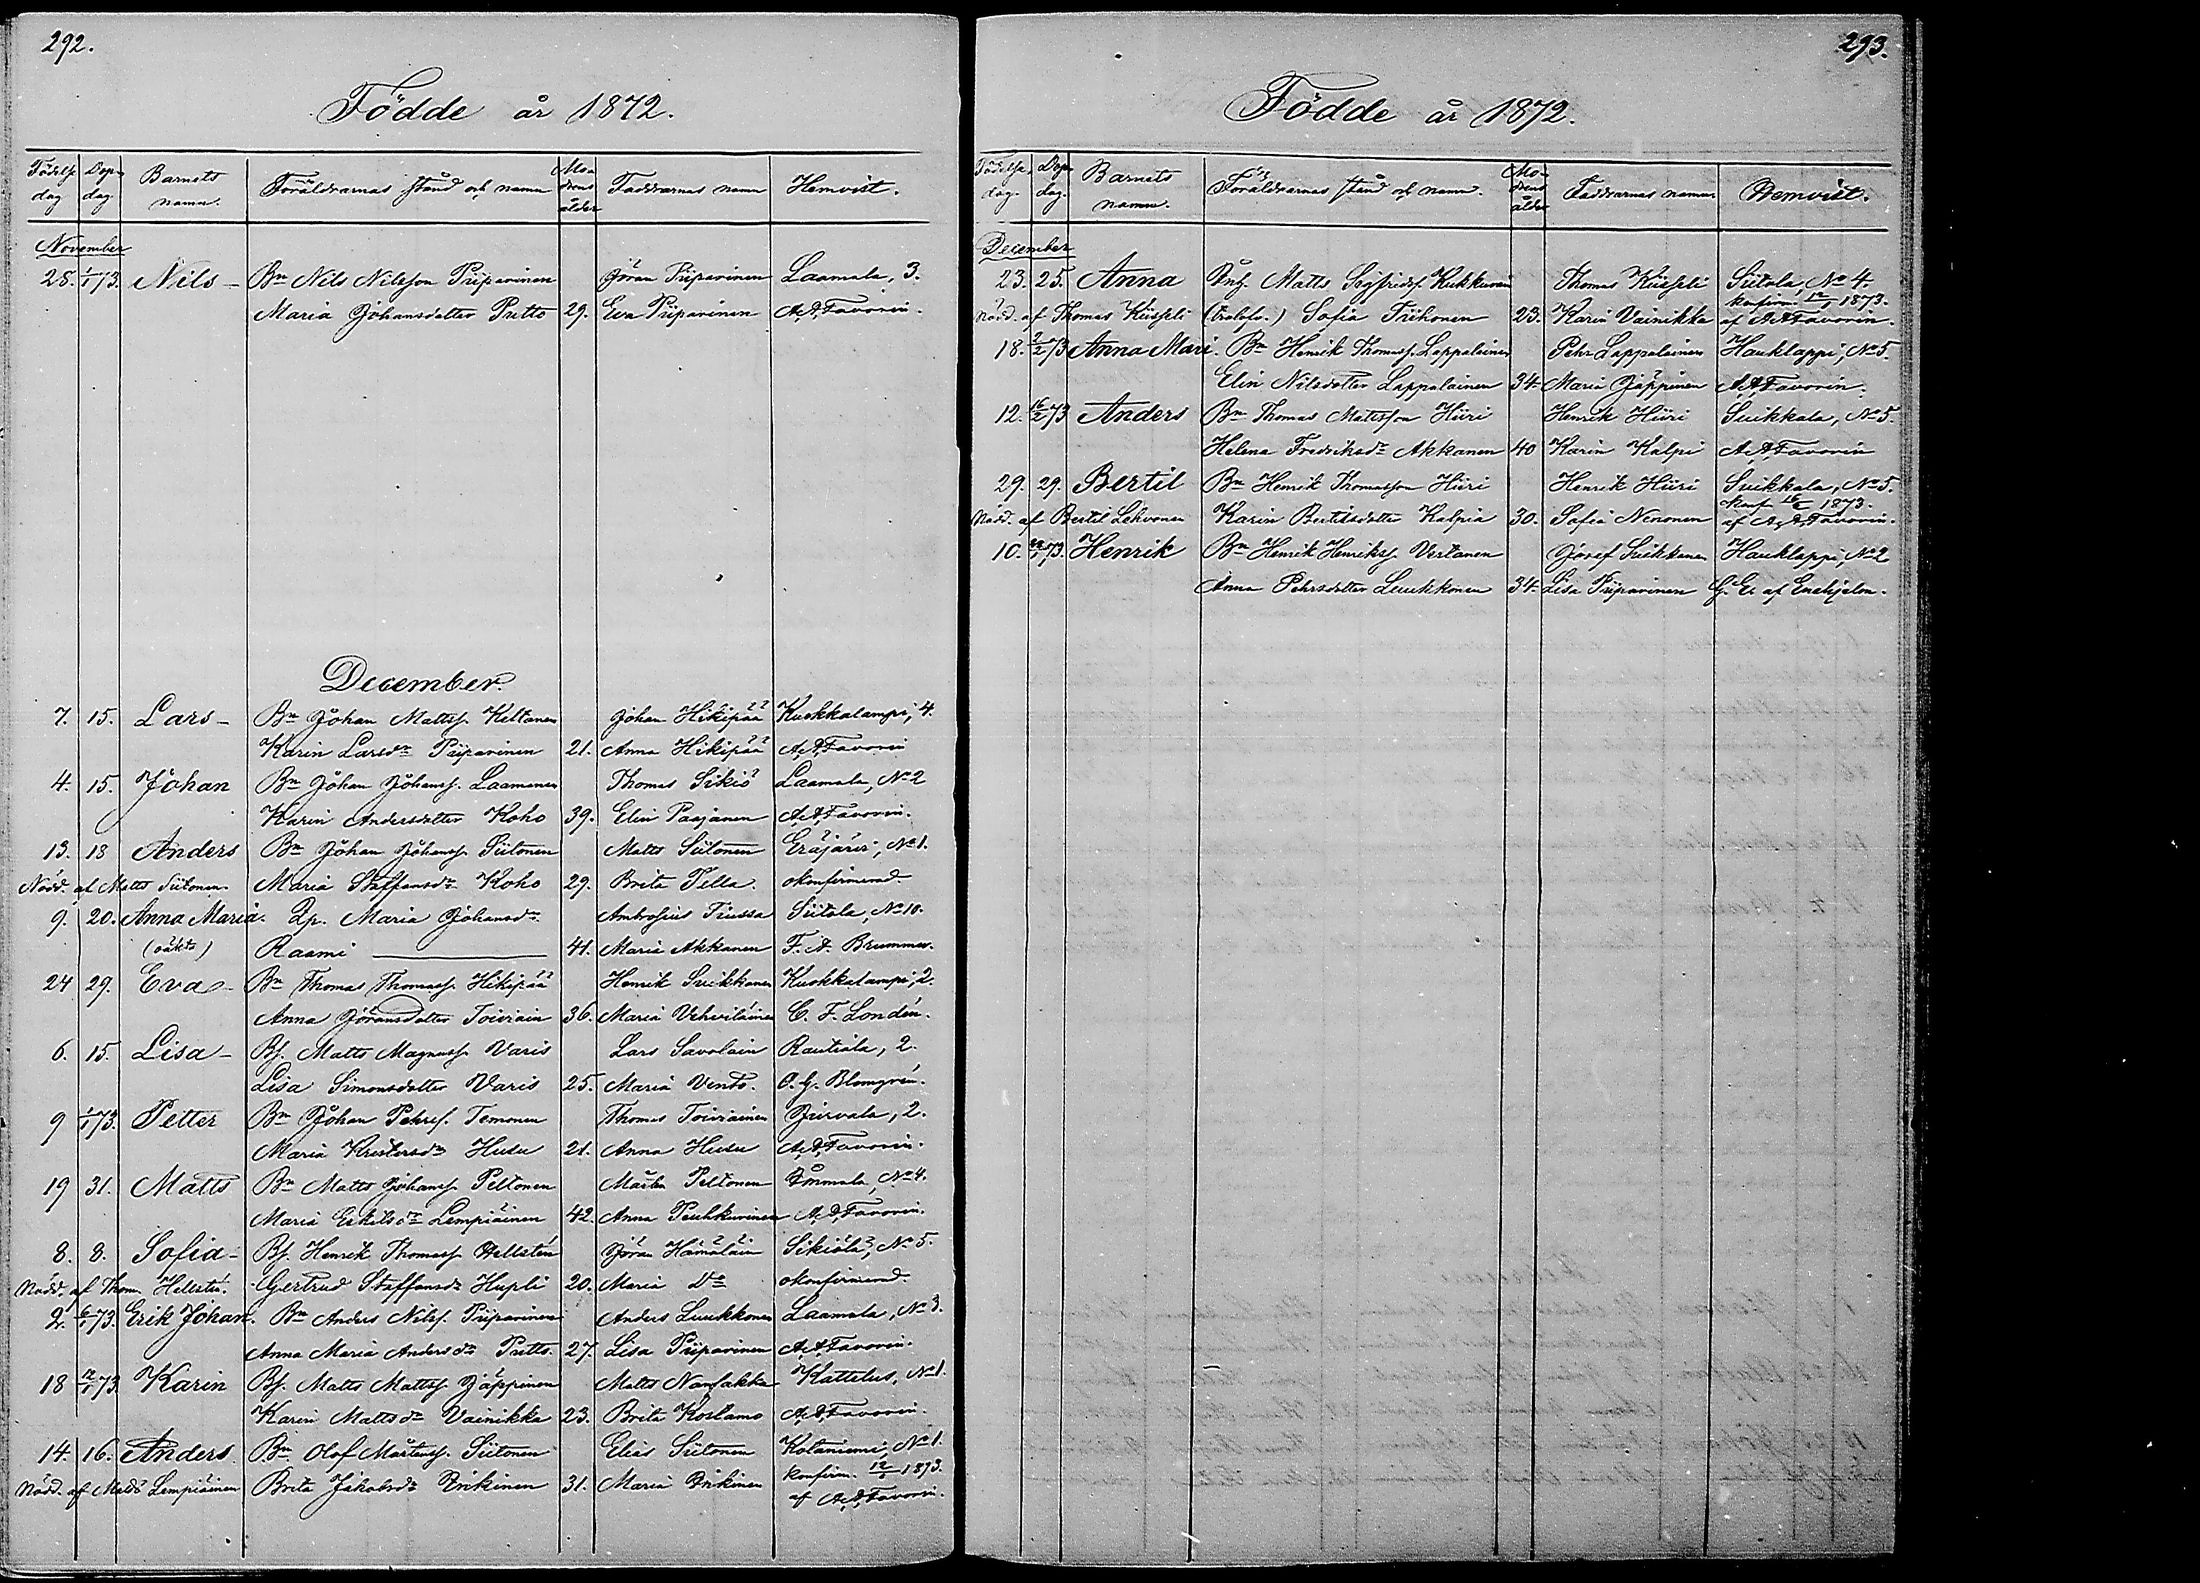 292.
Födde år 1872.
Födelse dag Dop dag. Barnets namn. Föräldrarnas stånd och namn Modrens ålder Faddrarnas namn Hemvist.
November
28. 1/1 73. Nils – Bn Nils Nilsson Piiparinen Jöran Piiparinen Laamala, 3.
Maria Johansdotter Putto 29. Eva Piiparinen A. A. Favorin.
December.
7. 15. Lars – Bn Johan Mattss. Keltanen Johan Hikipää Kuokkalampi, 4.
Karin Larsdr Piiparinen 21. Anna Hikipää A. A. Favorin
4. 15. Johan Bn Johan Johanss. Laamanen Thomas Sikiö Laamala, No 2
Karin Andersdotter Koho 39. Elin Paajanen A. A. Favorin.
13. 18 Anders Bn Johan Johanss. Siitonen Matts Siitonen Eräjärvi, No 1.
Nödd. af Matts Siitonen. Maria Staffansdr Koho 29. Brita Pella. okonfirmerad.
9. 20. Anna Maria. Lp. Maria Johansdr Ambrosius Tiussa Siitola, No 10.
(oäkta) Raami 41. Maria Akkanen F. A. Brummer.
24 29. Eva – Bn Thomas Thomass. Hikipää Henrik Suikkanen Kuokkalampi, 2.
Anna Jöransdotter Toiviain 36. Maria Vehviläinen C. F. Londén.
6. 15. Lisa – Bs. Matts Magnuss. Varis Lars Savolain Rautiala, 2.
Lisa Simonsdotter Varis 25. Maria Vento. O. G. Blomgrén.
9 1/1 73. Petter Bn Johan Pehrs. Temonen Thomas Toiviainen Jurvala, 2.
Maria Kristersdr Husu 21. Anna Husu A. A. Favorin.
19 31. Matts Bn Matts Johanss. Peltonen Mårten Peltonen Immala, No 4.
Maria Eskilsdr Lempiäinen 42. Anna Peuhkurinen A. A. Favorin.
8. 8. Sofia – Bs. Henrik Thomass. Hellstén Jöran Hämäläin Sikiälä, No 5.
Nödd. af Thom. Hellstén. Gertrud Staffansdr Hupli 20. Maria Do okonfirmerad.
2. 6/1 73. Erik Johan. Bn Anders Nilss. Piiparinen Anders Luukkonen Laamala, No 3.
Anna Maria Andersdr Putto. 27. Lisa Piiparinen A. A. Favorin.
18 12/1 73. Karin Bs. Matts Mattss. Jäppinen Matts Kattelus, No 1.
Karin Mattsdr Vainikka 23. Brita Koslamo A. A. Favorin.
14. 16. Anders Bn Olof Mårtenss. Siitonen Elias Siitonen Kotaniemi, No 1.
Nödd. af Matts Lempiäinen Brita Jakobsdr 31. Maria konfirm. 12/1 1873.
af A. A. Favorin.
293.
Födde år 1872.
Födelse dag. Dop dag. Barnets namn. Föräldrarnas stånd och namn. Modrens ålder Faddrarnas namn Hemvist.
December
23. 25. Anna Inh. Matts Sigfridss. Kukkurain Thomas Kiisseli Siitola, No 4.
konfirm. 1873.
Nödd. af Thomas Kiisseli Sofia Tiihonen 23. Karin Vainikka af A. A. Favorin.
18. 2/2 73 Anna Mari. Bn Henrik Thomass. Lappalainen Pehr Lappalainen Hauklappi, No 5.
Elin Nilsdotter Lappalainen 34. Maria Jäppinen A. A. Favorin.
12. 16/2 73 Anders Bn Thomas Mattsson Hiiri Henrik Hiiri Suikkala, No 5.
Helena Fredriksdr Akkanen 40 Karin Kalpi A. A. Favorin
29. 29. Bertil Bn Henrik Thomasson Hiiri Henrik Hiiri Suikkala, No 5.
konf. 1873.
Nödd. af Bertil Lehvonen Karin Bertilsdotter Kalpia 30. Sofia Nenonen af A. A. Favorin.
10. 73. Henrik Bn Henrik Henrikss. Vertanen Josef Suikkanen Hauklappi, No 2
Anna Pehrsdotter Luukkonen 34. Lisa Piiparinen G. E. af Enehjelm.